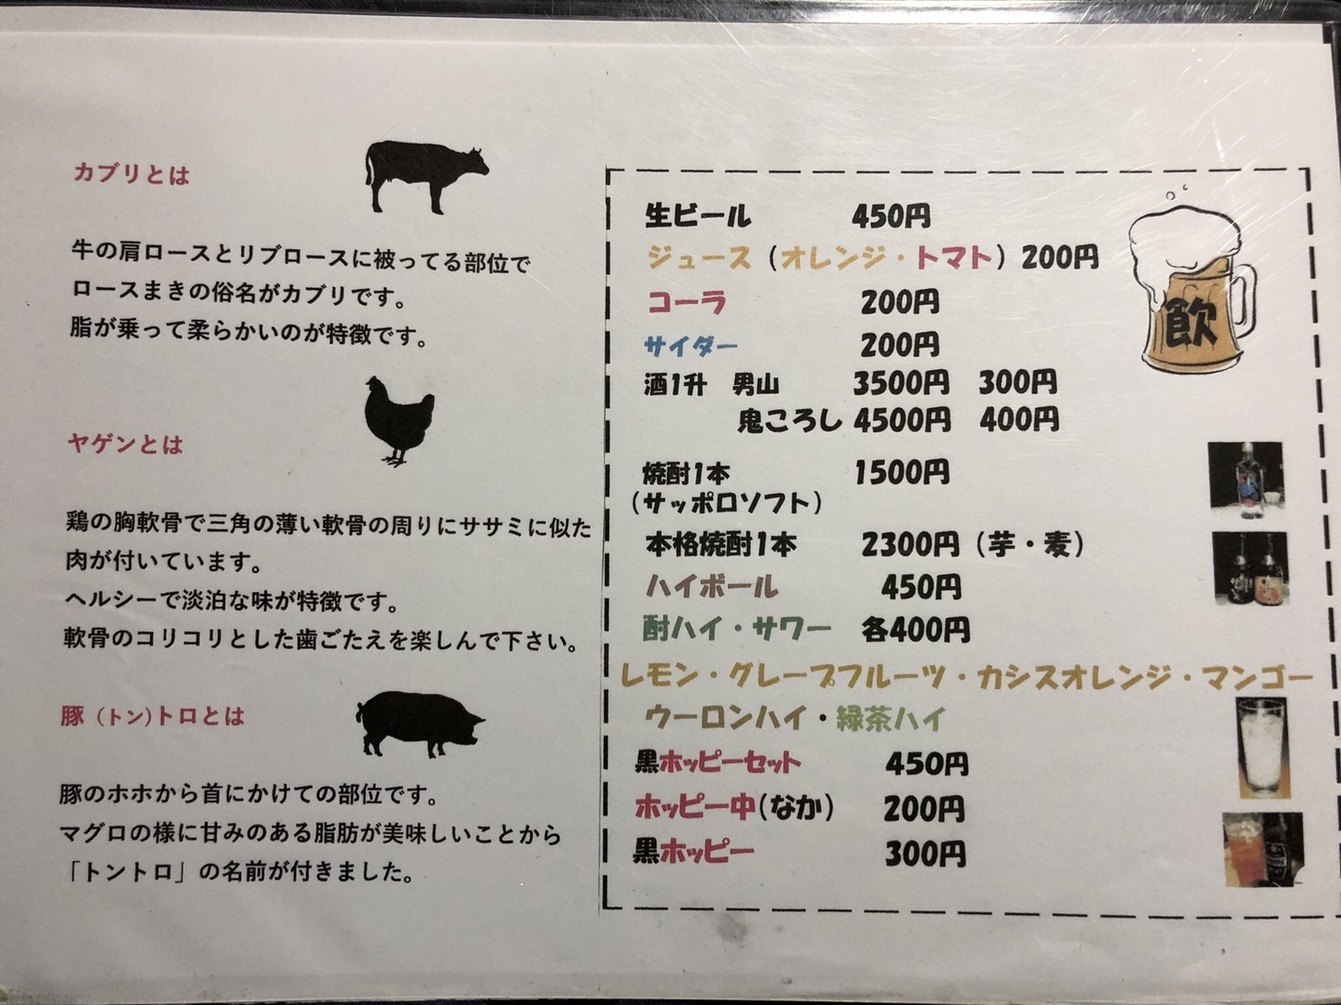 カブリとは
牛の肩ロースとリブロースに被ってる部位で
ロースまきの俗名がカブリです。
脂が乗って柔らかいのが特徴です。
ヤゲンとは
鶏の胸軟骨で三角の薄い軟骨の周りにササミに似た
肉が付いています。
ヘルシーで淡泊な味が特徴です。
軟骨のコリコリとした歯ごたえを楽しんで下さい。
豚(トン)トロとは
豚のホホから首にかけての部位です。
マグロの様に甘みのある脂肪が美味しいことから
「トントロ」の名前が付きました。
生ビール 450円
ジュース(オレンジ・トマト)200円
コーラ 200円
サイダー 200円
酒1升 男山 3500円 300円
鬼ころし 4500円 400円
焼酎1本 1500円
(サッポロソフト)
本格焼酎1本 2300円(芋・麦)
ハイボール 450円
酎ハイ・サワー 各400円
レモン・グレープフルーツ・カシスオレンジ・マンゴー
ウーロンハイ・緑茶ハイ
黒ホッピーセット 450円
ホッピー中(なか) 200円
黒ホッピー 300円
飲